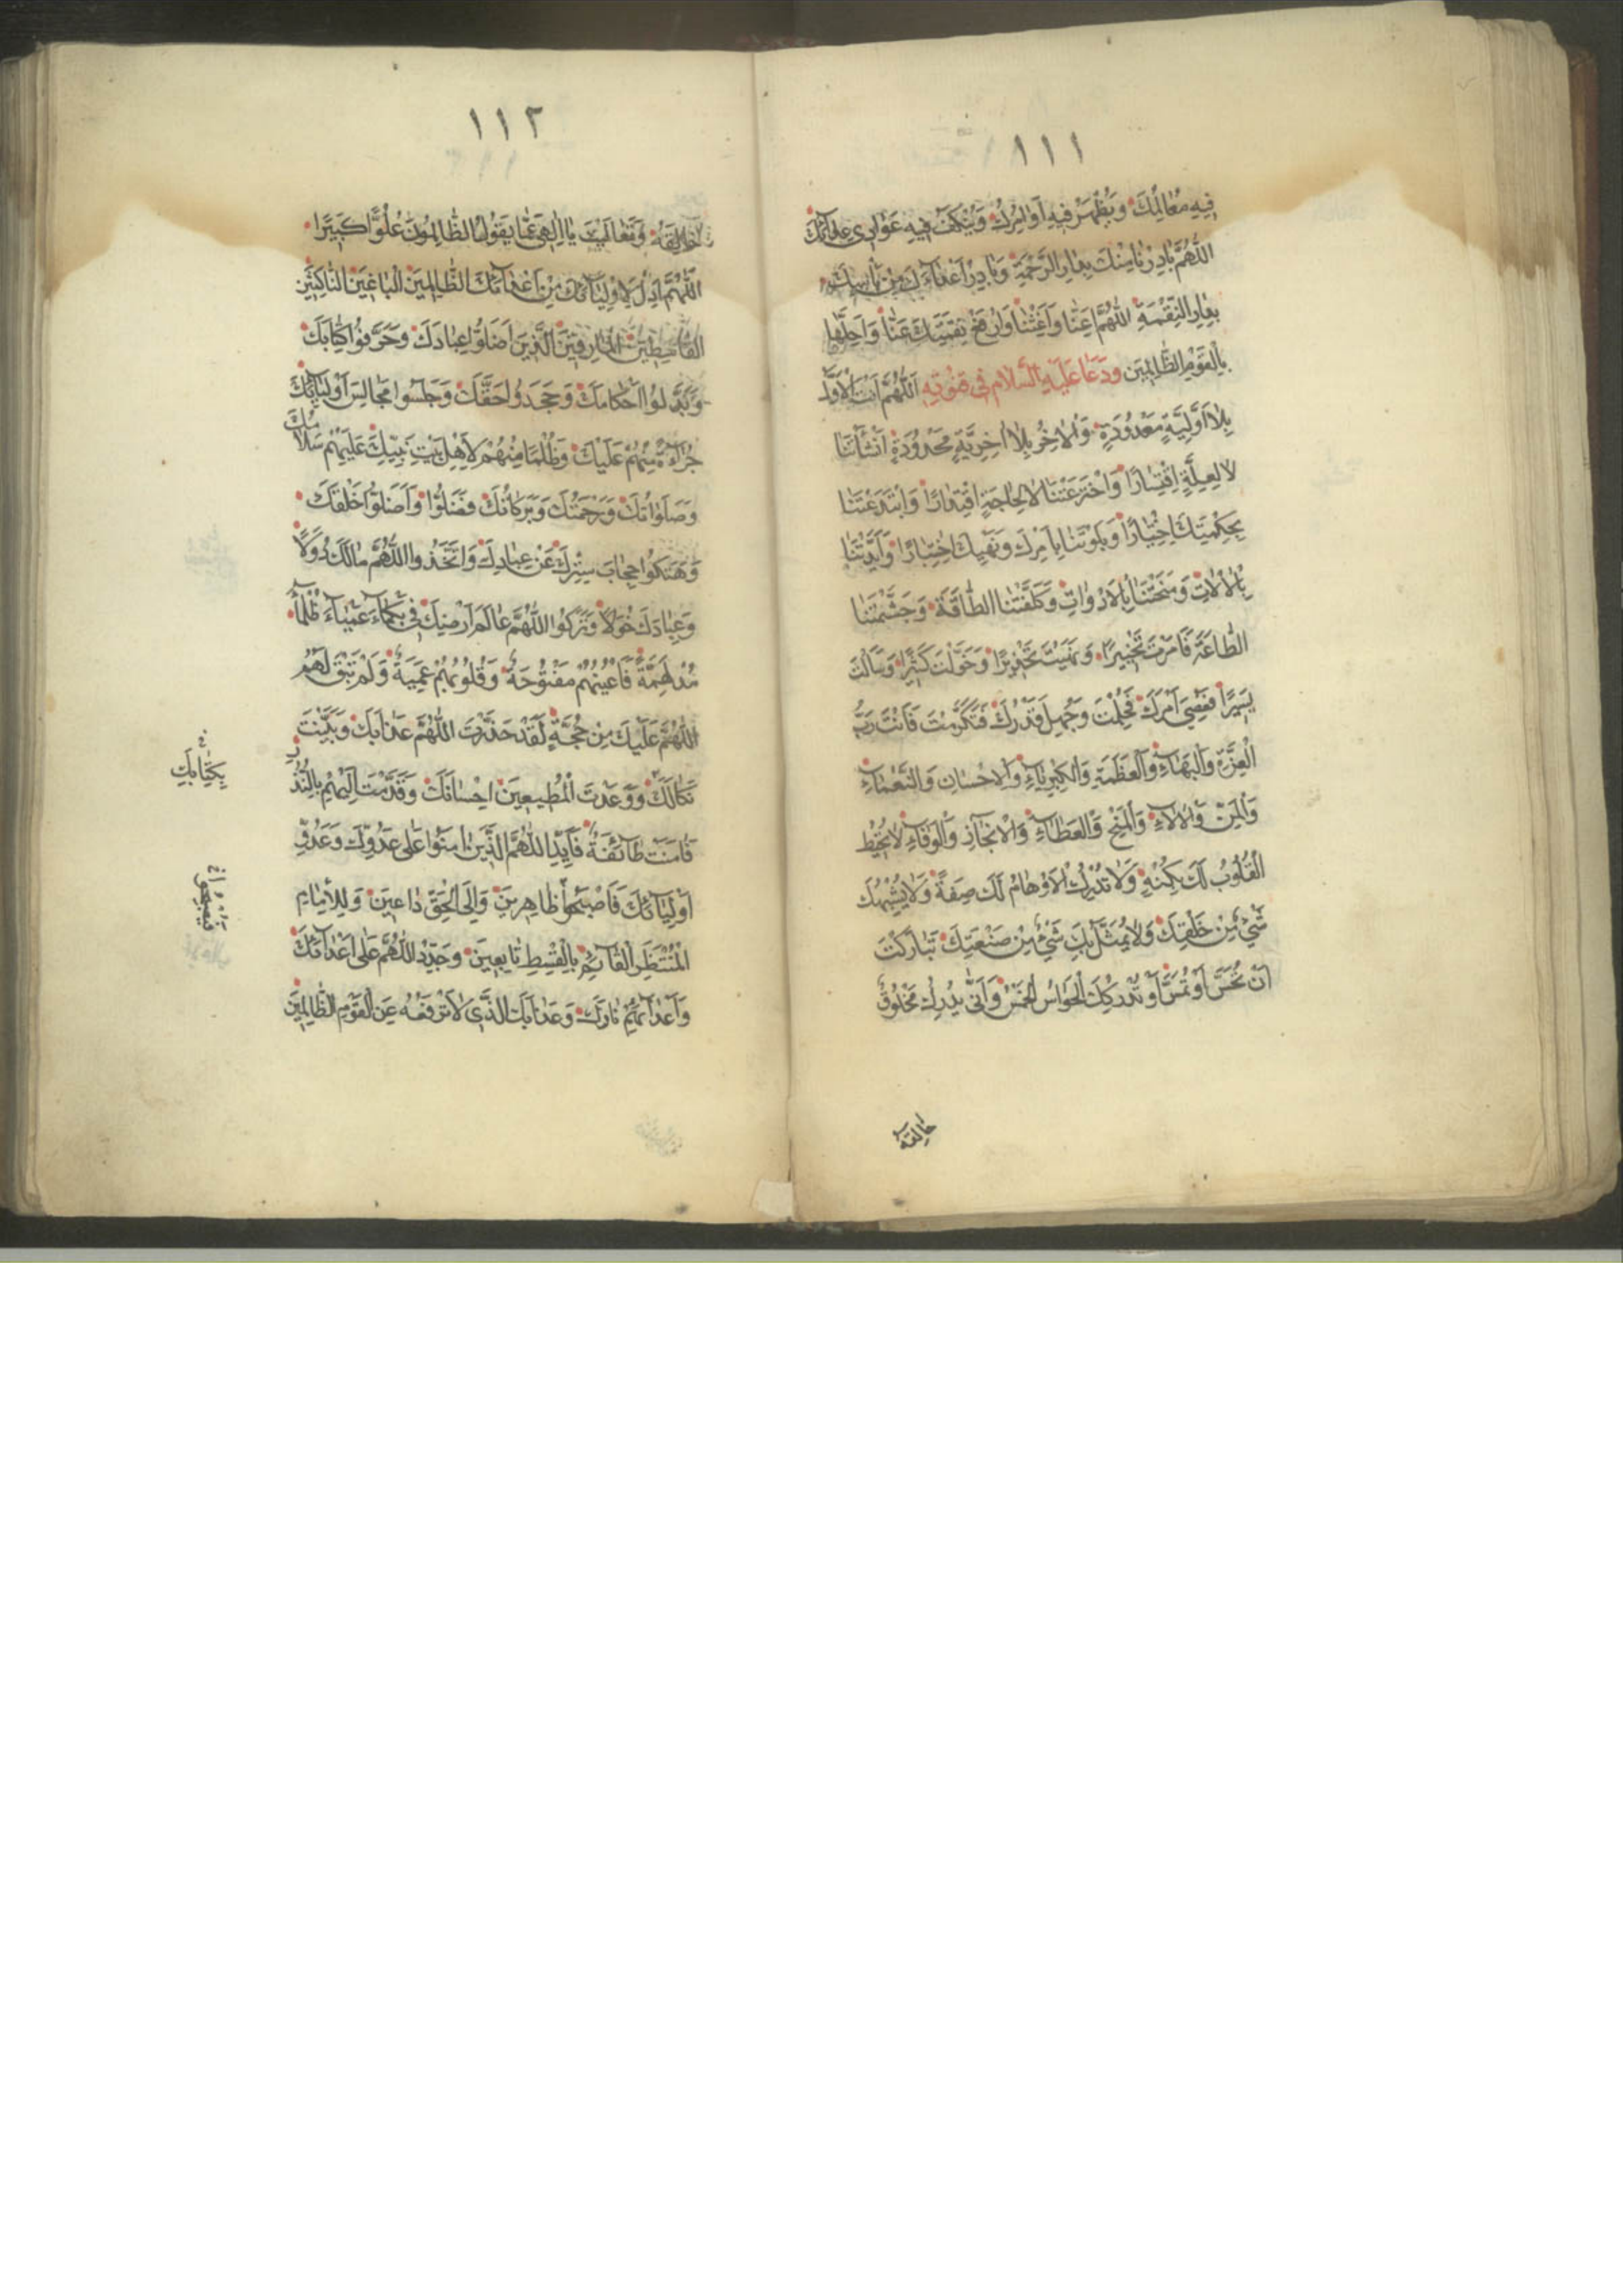 ١١١
فِيهِ مَعَالِمَكَ وَيُظْهَرُ فِيهِ أَوَامِرُكَ وَيَنْكَفُّ فِيهِ عَوَادِي
اللّٰهُمَّ بَادِرْنَا مِنْكَ بِدَارِ الرَّحْمَةِ وَبَادِرْ أَعْدَاءَكَ مِنْ بَأْسِكَ
بِدَارِ النِّقْمَةِ اللّٰهُمَّ أَعِنَّا وَأَغِثْنَا وَارْفَعْ نِقْمَتَكَ عَنَّا وَأَحِلَّهَا
بِالْقَوْمِ الظَّالِمِينَ وَدَعَا عَلَيْهِ السَّلَامُ فِي قُنُوتِهِ اللّٰهُمَّ أَنْتَ الْأَوَّلُ
بِلَا أَوَّلِيَّةٍ مَعْدُودَةٍ وَالْآخِرُ بِلَا آخِرِيَّةٍ مَحْدُودَةٍ أَنْشَأْتَنَا
لَا لِعِلَّةٍ اقْتِسَارًا وَاخْتَرَعْتَنَا لَا لِحَاجَةٍ اقْتِدَارًا وَابْتَدَعْتَنَا
بِحِكْمَتِكَ اخْتِيَارًا وَبَلَوْتَنَا بِأَمْرِكَ وَنَهْيِكَ اخْتِبَارًا وَأَيَّدْتَنَا
بِالْآلَاتِ وَمَنَحْتَنَا بِالْأَدَوَاتِ وَكَلَّفْتَنَا الطَّاقَةَ وَجَشَّمْتَنَا
الطَّاعَةَ فَأَمَرْتَ تَخْيِيرًا وَنَهَيْتَ تَحْذِيرًا وَخَوَّلْتَ كَثِيرًا وَسَأَلْتَ
يَسِيرًا فَعُصِيَ أَمْرُكَ فَحَلُمْتَ وَجُهِلَ قَدْرُكَ فَتَكَرَّمْتَ فَأَنْتَ رَبُّ
الْعِزَّةِ وَالْبَهَاءِ وَالْعَظَمَةِ وَالْكِبْرِيَاءِ وَالْإِحْسَانِ وَالنَّعْمَاءِ
وَالْمَنِّ وَالْآلَاءِ وَالْمِنَحِ وَالْعَطَاءِ وَالْإِنْجَازِ وَالْوَفَاءِ لَا تُحِيطُ
الْقُلُوبُ لَكَ بِكُنْهٍ وَلَا تُدْرِكُ الْأَوْهَامُ لَكَ صِفَةً وَلَا يُشْبِهُكَ
شَيْءٌ مِنْ خَلْقِكَ وَلَا يُمَثَّلُ بِكَ شَيْءٌ مِنْ صَنْعَتِكَ تَبَارَكْتَ
أَنْ تُحَسَّ أَوْ تُمَسَّ أَوْ تُدْرِكَكَ الْحَوَاسُّ الْخَمْسُ وَأَنَّى يُدْرِكُ مَخْلُوقٌ
خَالِقَهُ
١١٢
خَالِقَهُ وَتَعَالَيْتَ يَا إِلٰهِي عَمَّا يَقُولُ الظَّالِمُونَ عُلُوًّا كَبِيرًا
اللّٰهُمَّ أَدِلْ لِأَوْلِيَائِكَ مِنْ أَعْدَائِكَ الظَّالِمِينَ الْبَاغِينَ النَّاكِثِينَ
الْقَاسِطِينَ الْمَارِقِينَ الَّذِينَ أَضَلُّوا عِبَادَكَ وَحَرَّفُوا كِتَابَكَ
وَبَدَّلُوا أَحْكَامَكَ وَجَحَدُوا حَقَّكَ وَجَلَسُوا مَجَالِسَ أَوْلِيَائِكَ
جُرْأَةً مِنْهُمْ عَلَيْكَ وَظُلْمًا مِنْهُمْ لِأَهْلِ بَيْتِ نَبِيِّكَ عَلَيْهِمْ سَلَامُكَ
وَصَلَوَاتُكَ وَرَحْمَتُكَ وَبَرَكَاتُكَ فَضَلُّوا وَأَضَلُّوا خَلْقَكَ
وَهَتَكُوا حِجَابَ سِتْرِكَ عَنْ عِبَادِكَ وَاتَّخَذُوا اللّٰهُمَّ مَالَكَ دُوَلًا
وَعِبَادَكَ خَوَلًا وَتَرَكُوا اللّٰهُمَّ عَالَمَ أَرْضِكَ فِي بَكْمَاءَ عَمْيَاءَ ظَلْمَاءَ
مُدْلَهِمَّةً فَأَعْيُنُهُمْ مَفْتُوحَةٌ وَقُلُوبُهُمْ عَمِيَةٌ وَلَمْ تَبْقَ لَهُمُ
اللّٰهُمَّ عَلَيْكَ مِنْ حُجَّةٍ لَقَدْ حَذَّرْتَ اللّٰهُمَّ عَذَابَكَ وَبَيَّنْتَ
نَكَالَكَ وَوَعَدْتَ الْمُطِيعِينَ إِحْسَانَكَ وَقَدَّمْتَ إِلَيْهِمْ بِالنُّذُرِ
بِكِتَابِكَ
فَآمَنَتْ طَائِفَةٌ فَأَيِّدِ اللّٰهُمَّ الَّذِينَ آمَنُوا عَلَى عَدُوِّكَ وَعَدُوِّ
أَوْلِيَائِكَ فَأَصْبَحُوا ظَاهِرِينَ وَإِلَى الْحَقِّ دَاعِينَ وَلِلْإِمَامِ
الْمُنْتَظَرِ الْقَائِمِ بِالْقِسْطِ تَابِعِينَ وَجَدِّدِ اللّٰهُمَّ عَلَى أَعْدَائِكَ
وَأَعْدَائِهِمْ نَارَكَ وَعَذَابَكَ الَّذِي لَا تَرْفَعُهُ عَنِ الْقَوْمِ الظَّالِمِينَ